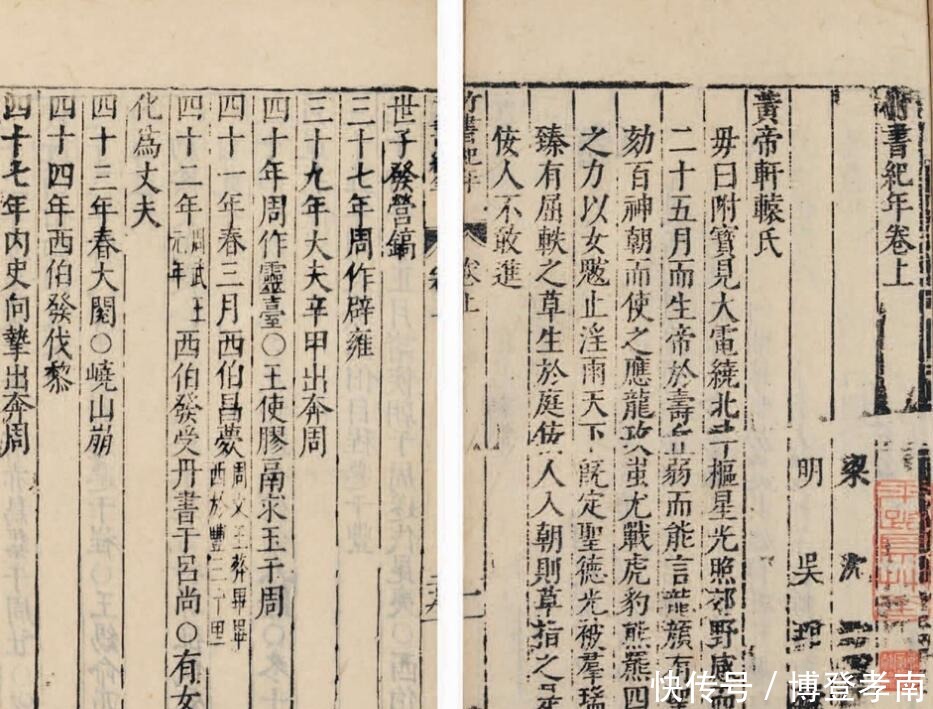 竹書紀年卷上
梁 沈
明 吳
黃帝軒轅氏
毋曰附寶見大電繞北斗樞星光照郊野感而
二十五月而生帝於壽丘弱而能言龍顏有
劾百神朝而使之應龍攻蚩尤戰虎豹熊羆四
之力以女魃止淫雨天下既定聖德光被羣瑞
臻有屈軼之草生於庭佞人入朝則草指之是
佞人不敢進
竹書紀年 卷上 一
世子發營鎬
三十七年周作辟雍
三十九年大夫辛甲出奔周
四十年周作靈臺○王使膠鬲求玉于周
四十一年春三月西伯昌薨周文王葬畢畢西於豐三十里
四十二年周武王元年西伯發受丹書于呂尚○有女
化為丈夫
四十三年春大閱○嶢山崩
四十四年西伯發伐黎
四十七年內史向摯出奔周
快传号 / 博登孝南